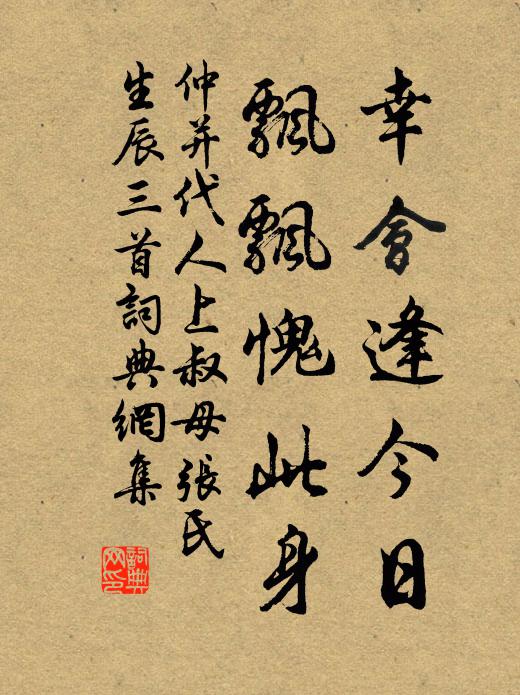 幸會逢今日
飄飄愧此身
仲并代人上叔母張氏
生辰三首詞典網集
詞典
网印